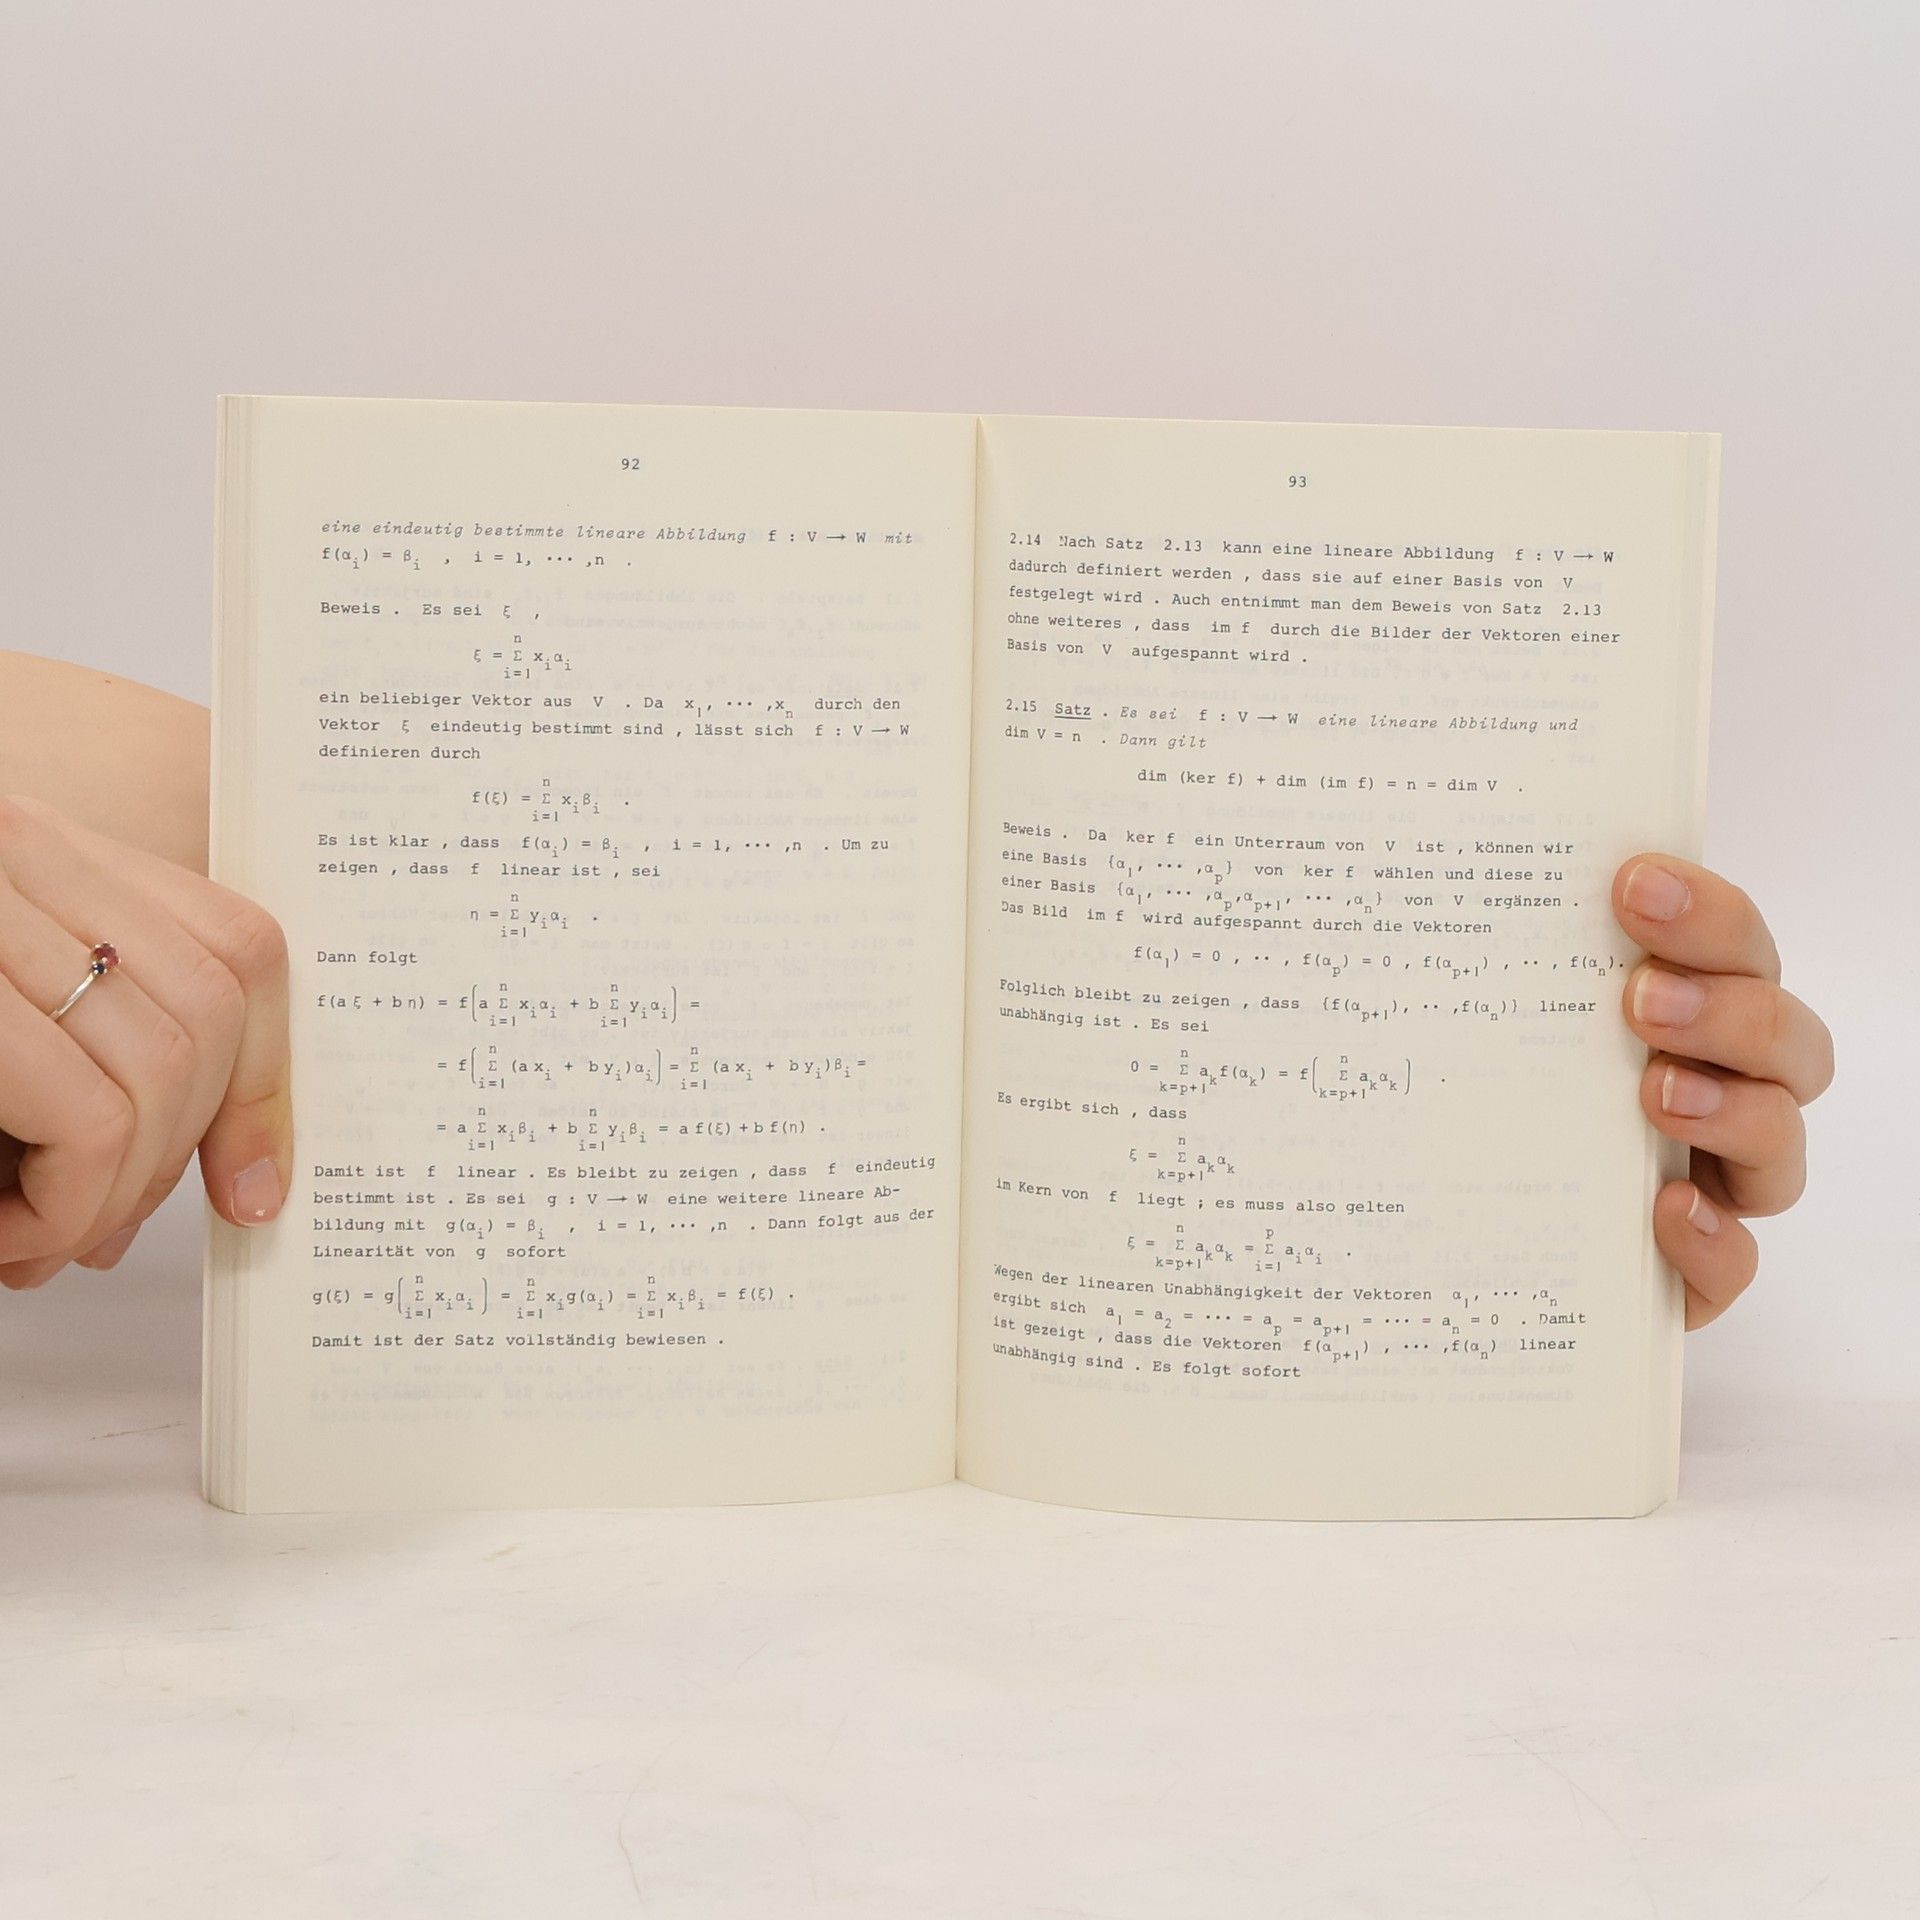 92
eine eindeutig bestimmte lineare Abbildung f : V → W mit
f(α_i) = β_i , i = 1, ··· ,n .
Beweis . Es sei ξ ,
ξ = Σ_{i=1}^{n} x_i α_i
ein beliebiger Vektor aus V . Da x_1, ··· ,x_n durch den
Vektor ξ eindeutig bestimmt sind , lässt sich f : V → W
definieren durch
f(ξ) = Σ_{i=1}^{n} x_i β_i .
Es ist klar , dass f(α_i) = β_i , i = 1, ··· ,n . Um zu
zeigen , dass f linear ist , sei
η = Σ_{i=1}^{n} y_i α_i .
Dann folgt
f(a ξ + b η) = f( a Σ_{i=1}^{n} x_i α_i + b Σ_{i=1}^{n} y_i α_i ) =
= f( Σ_{i=1}^{n} (a x_i + b y_i) α_i ) = Σ_{i=1}^{n} (a x_i + b y_i) β_i =
= a Σ_{i=1}^{n} x_i β_i + b Σ_{i=1}^{n} y_i β_i = a f(ξ) + b f(η) .
Damit ist f linear . Es bleibt zu zeigen , dass f eindeutig
bestimmt ist . Es sei g : V → W eine weitere lineare Ab-
bildung mit g(α_i) = β_i , i = 1, ··· ,n . Dann folgt aus der
Linearität von g sofort
g(ξ) = g( Σ_{i=1}^{n} x_i α_i ) = Σ_{i=1}^{n} x_i g(α_i) = Σ_{i=1}^{n} x_i β_i = f(ξ) .
Damit ist der Satz vollständig bewiesen .
93
2.14 Nach Satz 2.13 kann eine lineare Abbildung f : V → W
dadurch definiert werden , dass sie auf einer Basis von V
festgelegt wird . Auch entnimmt man dem Beweis von Satz 2.13
ohne weiteres , dass im f durch die Bilder der Vektoren einer
Basis von V aufgespannt wird .
2.15 Satz . Es sei f : V → W eine lineare Abbildung und
dim V = n . Dann gilt
dim (ker f) + dim (im f) = n = dim V .
Beweis . Da ker f ein Unterraum von V ist , können wir
eine Basis {α_1, ··· ,α_p} von ker f wählen und diese zu
einer Basis {α_1, ··· ,α_p,α_{p+1}, ··· ,α_n} von V ergänzen .
Das Bild im f wird aufgespannt durch die Vektoren
f(α_1) = 0 , ·· , f(α_p) = 0 , f(α_{p+1}) , ·· , f(α_n).
Folglich bleibt zu zeigen , dass {f(α_{p+1}), ·· ,f(α_n)} linear
unabhängig ist . Es sei
0 = Σ_{k=p+1}^{n} a_k f(α_k) = f( Σ_{k=p+1}^{n} a_k α_k ) .
Es ergibt sich , dass
ξ = Σ_{k=p+1}^{n} a_k α_k
im Kern von f liegt ; es muss also gelten
ξ = Σ_{k=p+1}^{n} a_k α_k = Σ_{i=1}^{p} a_i α_i .
Wegen der linearen Unabhängigkeit der Vektoren α_1, ··· ,α_n
ergibt sich a_1 = a_2 = ··· = a_p = a_{p+1} = ··· = a_n = 0 . Damit
ist gezeigt , dass die Vektoren f(α_{p+1}) , ··· ,f(α_n) linear
unabhängig sind . Es folgt sofort